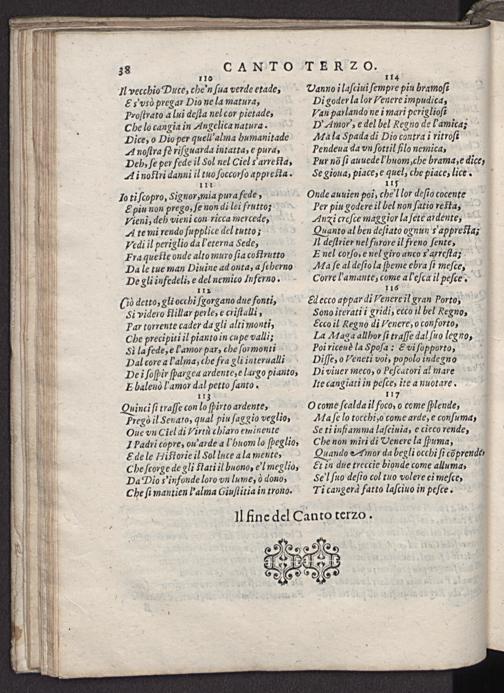 38
CANTO TERZO.
110
Il vecchio Duce, che'n sua verde etade,
E s'vsò pregar Dio ne la matura,
Prostrato a lui desta nel cor pietade,
Che lo cangia in Angelica natura.
Dice, o Dio per quell'alma humanitade
A nostra fè risguarda intatta, e pura,
Deh, se per fede il Sol nel Ciel s'arresta,
A i nostri danni il tuo soccorso appresta.
111
Io ti scopro, Signor, mia pura fede,
E piu non prego, se non di lei frutto;
Vieni, deh vieni con ricca mercede,
A te mi rendo supplice del tutto;
Vedi il periglio da l'eterna Sede,
Fra queste onde alto muro sia costrutto
Da le tue man Diuine ad onta, a scherno
De gli infedeli, e del nemico Inferno.
112
Ciò detto, gli occhi sgorgano due fonti,
Si videro stillar perle, e cristalli,
Par torrente cader da gli alti monti,
Che precipiti il pianto in cupe valli;
Sì la fede, e l'amor par, che sormonti
Dal core a l'alma, che fra gli interualli
De i sospir spargea ardente, e largo pianto,
E balenò l'amor dal petto santo.
113
Quinci si trasse con lo spirto ardente,
Pregò il Senato, qual piu saggio veglio,
Oue vn Ciel di Virtù chiaro eminente
I Padri copre, ou'arde a l'huom lo speglio,
E de le Historie il Sol luce a la mente,
Che scorge de gli stati il buono, e'l meglio,
Da Dio s'infonde loro vn lume, ò dono,
Che si mantien l'alma Giustitia in trono.
114
Vanno i lasciui sempre piu bramosi
Di goder la lor Venere impudica,
Van parlando ne i mari perigliosi
D'Amor', e del bel Regno de l'amica;
Ma la Spada di Dio contra i ritrosi
Pendeua da vn sottil filo nemica,
Pur nō si auuede l'huom, che brama, e dice,
Se gioua, piace, e quel, che piace, lice.
115
Onde auuien poi, che'l lor desio cocente
Per piu godere il bel non satio resta,
Anzi cresce maggior la sete ardente,
Quanto al ben desiato ognun s'appresta;
Il destrier nel furore il freno sente,
E nel corso, e nel giro anco s'arresta;
Ma se al desio la speme ebra si mesce,
Corre l'amante, come a l'esca il pesce.
116
Ed ecco appar di Venere il gran Porto,
Sono iterati i gridi, ecco il bel Regno,
Ecco il Regno di Venere, o conforto,
La Maga allhor si trasse dal suo legno,
Poi riceuè la Sposa: E vi sopporto,
Disse, o Veneti voi, popolo indegno
Di viuer meco, o Pescatori al mare
Ite cangiati in pesce, ite a nuotare.
117
O come scalda il foco, o come splende,
Ma se lo tocchi, o come arde, e consuma,
Se ti infiamma lasciuia, e cieco rende,
Che non miri di Venere la spuma,
Quando Amor da begli occhi si cōprende
Et in due treccie bionde come alluma,
Se'l suo desio col tuo volere ei mesce,
Ti cangerà fatto lasciuo in pesce.
Il fine del Canto terzo.